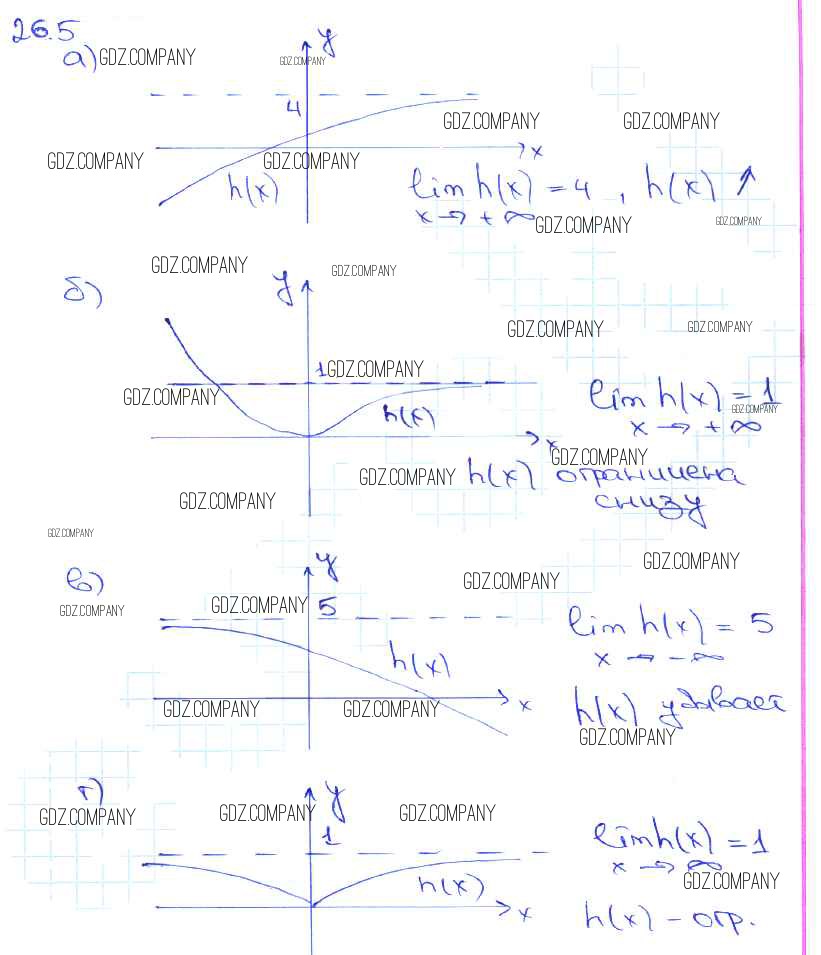 26.5
а) GDZ.COMPANY
GDZ.COMPANY
y
4
GDZ.COMPANY GDZ.COMPANY
GDZ.COMPANY GDZ.COMPANY
x
h(x)
lim h(x) = 4 , h(x) ↑
x → + ∞
GDZ.COMPANY GDZ.COMPANY
GDZ.COMPANY GDZ.COMPANY
б) y
GDZ.COMPANY GDZ.COMPANY
1 GDZ.COMPANY
GDZ.COMPANY
h(x)
lim h(x) = 1
GDZ.COMPANY
x → + ∞
x
GDZ.COMPANY
GDZ.COMPANY h(x) ограничена
GDZ.COMPANY снизу
GDZ.COMPANY
GDZ.COMPANY
в) y
GDZ.COMPANY
GDZ.COMPANY GDZ.COMPANY 5
lim h(x) = 5
x → - ∞
h(x)
x
GDZ.COMPANY GDZ.COMPANY
h(x) убывает
GDZ.COMPANY
г) y
GDZ.COMPANY GDZ.COMPANY GDZ.COMPANY
1
lim h(x) = 1
x → ∞
GDZ.COMPANY
h(x)
x
h(x) – огр.